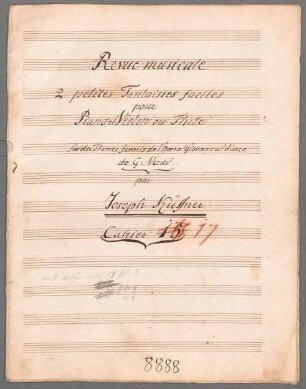 Revue musicale
2 petites Fantaisies faciles
pour
Piano et Violon ou Flûte
sur des Themes favoris de l'Opera Giovanna d'Arco
de G. Verdi
par
Joseph Küffner
Cahier 17
8888